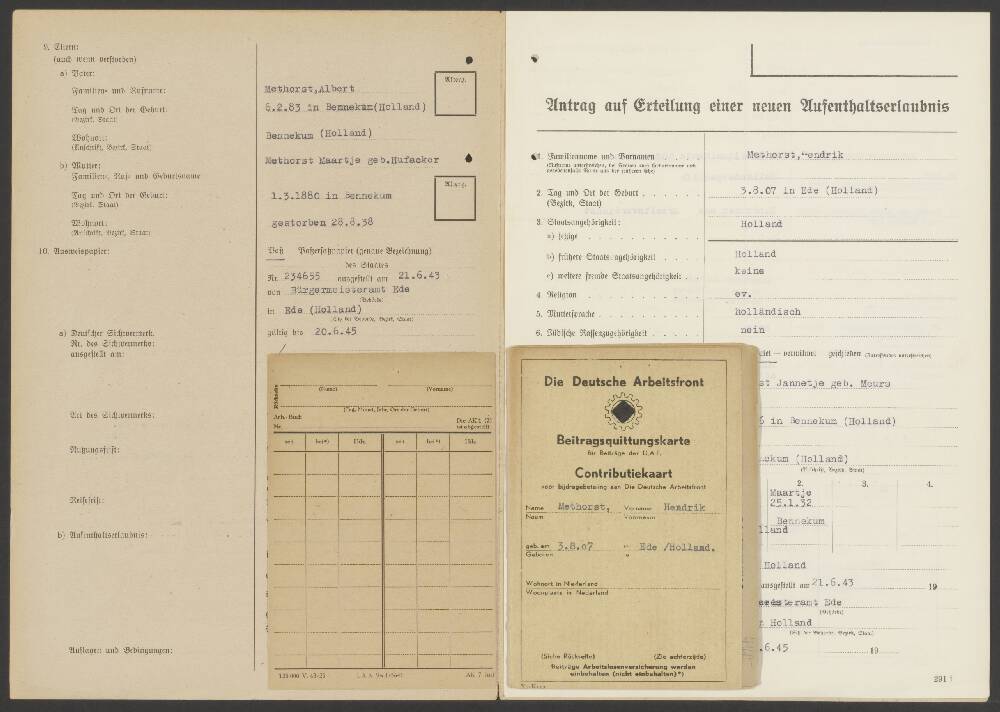 9. Eltern:
(auch wenn verstorben)
a) Vater:
Familien- und Rufname:
Methorst,Albert
Tag und Ort der Geburt:
(Bezirk, Staat)
6.2.83 in Bennekum(Holland)
Wohnort:
(Anschrift, Bezirk, Staat)
Bennekum (Holland)
b) Mutter:
Familien-, Ruf- und Geburtsname
Methorst Maartje geb.Hufacker
Tag und Ort der Geburt:
(Bezirk, Staat)
1.3.1880 in Bennekum
Wohnort:
(Anschrift, Bezirk, Staat)
gestorben 28.8.38
10. Ausweispapier:
Paß Paßersatzpapier (genaue Bezeichnung)
des Staates
Nr. 234655 ausgestellt am 21.6.43
von Bürgermeisteramt Ede
(Behörde)
in Ede (Holland)
gültig bis 20.6.45
a) Deutscher Sichtvermerk:
Nr. des Sichtvermerks:
ausgestellt am:
Art des Sichtvermerks:
Nutzungsfrist:
Reisefrist:
b) Aufenthaltserlaubnis:
Auflagen und Bedingungen:
(Name) (Vorname)
(Tag, Monat, Jahr, Ort der Geburt)
Arb.-Buch
Nr.
Antrag auf Erteilung einer neuen Aufenthaltserlaubnis
1. Familienname und Vornamen
Methorst,Hendrik
2. Tag und Ort der Geburt
(Bezirk, Staat)
3.8.07 in Ede (Holland)
3. Staatsangehörigkeit:
a) jetzige
Holland
b) frühere Staatsangehörigkeit
Holland
c) weitere fremde Staatsangehörigkeit
keine
4. Religion
ev.
5. Muttersprache
Holländisch
6. Jüdische Rassenzugehörigkeit
nein
verwitwet geschieden
st Jannetje geb. Meurs
6 in Bennekum (Holland)
ekum (Holland)
(Anschrift, Bezirk, Staat)
2. 3. 4.
Maartje
25.1.32
Bennekum
lland
Holland
ausgestellt am 21.6.43 19
eisteramt Ede
(Behörde)
Holland
.6.45 19
291
Die Deutsche Arbeitsfront
Beitragsquittungskarte
für Beiträge der D.A.F.
Contributiekaart
voor bijdragebetaling aan Die Deutsche Arbeitsfront
Name Methorst, Vorname Hendrik
Naam Voornaam
geb. am 3.8.07 in Ede /Holland.
Geboren
Wohnort in Niederland
Woonplaats in Nederland
(Siehe Rückseite) (Zie achterzijde)
Beiträge Arbeitslosenversicherung werden
einbehalten (nicht einbehalten)*)